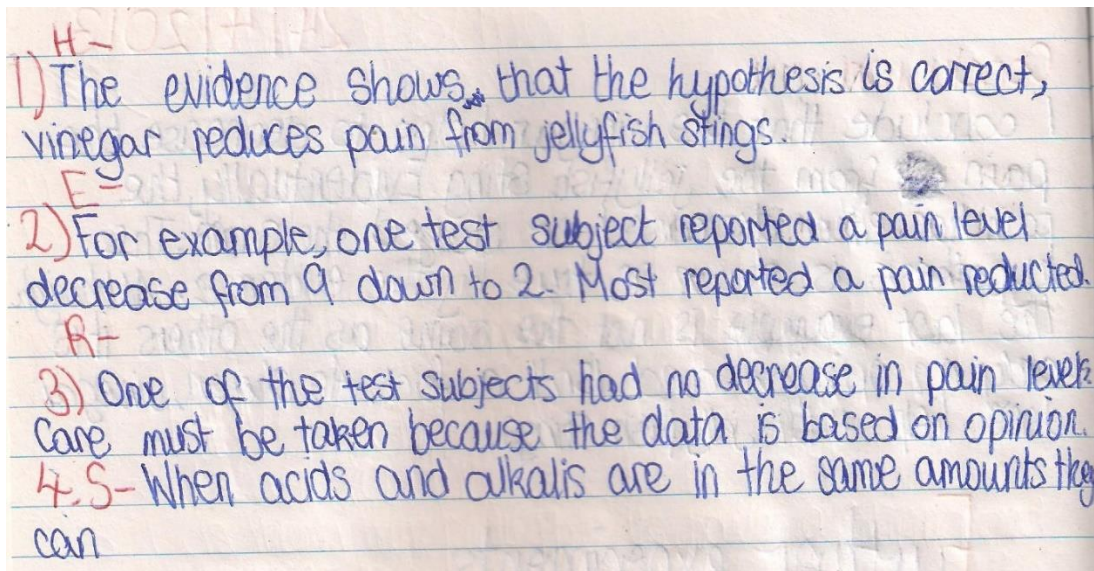 H-
1) The evidence shows that the hypothesis is correct,
vinegar reduces pain from jellyfish stings.
E-
2) For example, one test subject reported a pain level
decrease from 9 down to 2. Most reported a pain reducted.
R-
3) One of the test subjects had no decrease in pain levels.
Care must be taken because the data is based on opinion.
4. S- When acids and alkalis are in the same amounts they
can